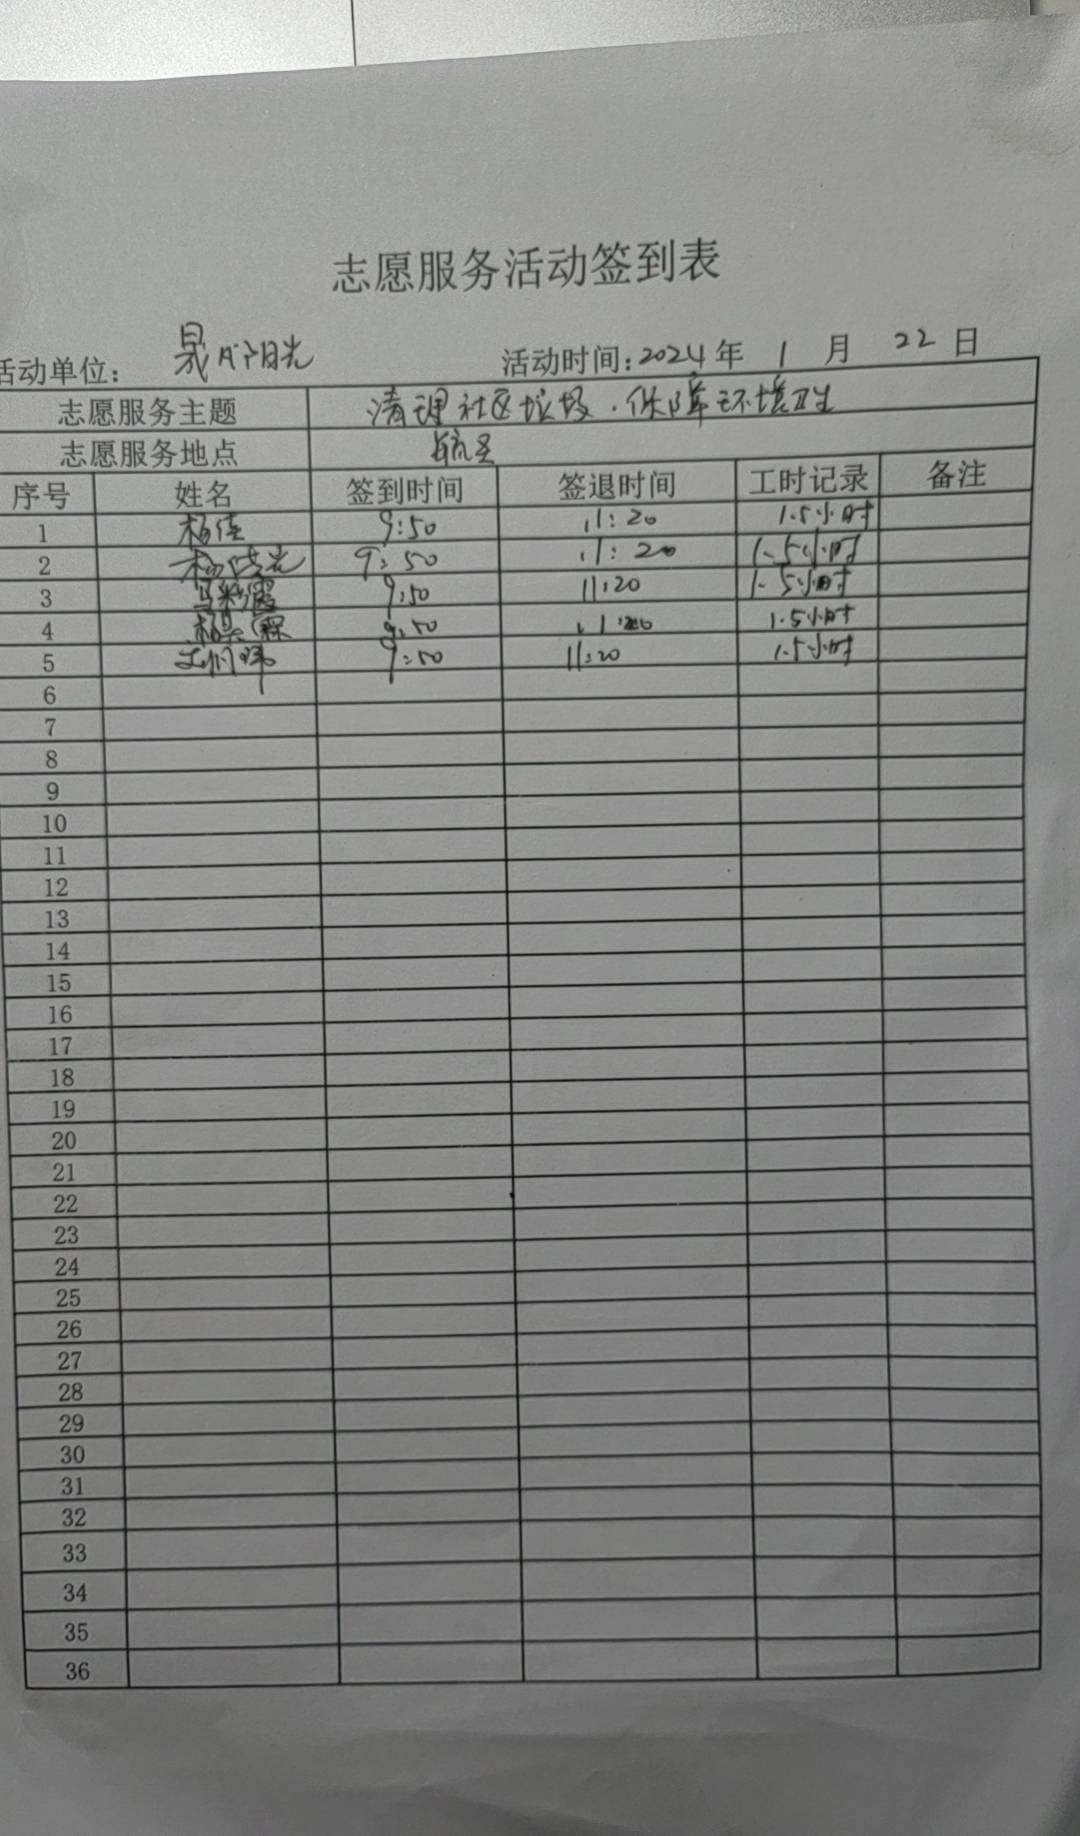 志愿服务活动签到表
活动单位: 晟 阳光 活动时间: 2024 年 1 月 22 日
志愿服务主题 清理社区垃圾.保障环境卫生
志愿服务地点 航天
序号 姓名 签到时间 签退时间 工时记录 备注
1 杨佳 9:50 11:20 1.5小时
2 9:50 11:20 1.5小时
3 马彩霞 9:50 11:20 1.5小时
4 9:50 11:20 1.5小时
5 9:50 11:20 1.5小时
6
7
8
9
10
11
12
13
14
15
16
17
18
19
20
21
22
23
24
25
26
27
28
29
30
31
32
33
34
35
36